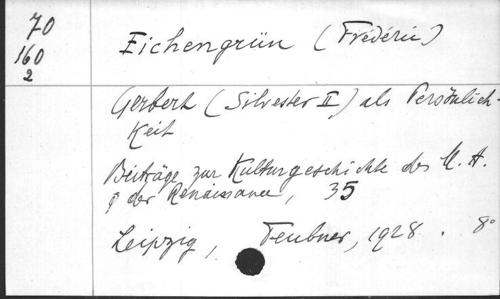 70
160
2
Eichengrün (Frédéric)
Gerbert (Silvester II) als Persönlich-
keit
Beiträge zur Kulturgeschichte des M. A.
& der Renaissance, 35
Leipzig, Teubner, 1928. 8°